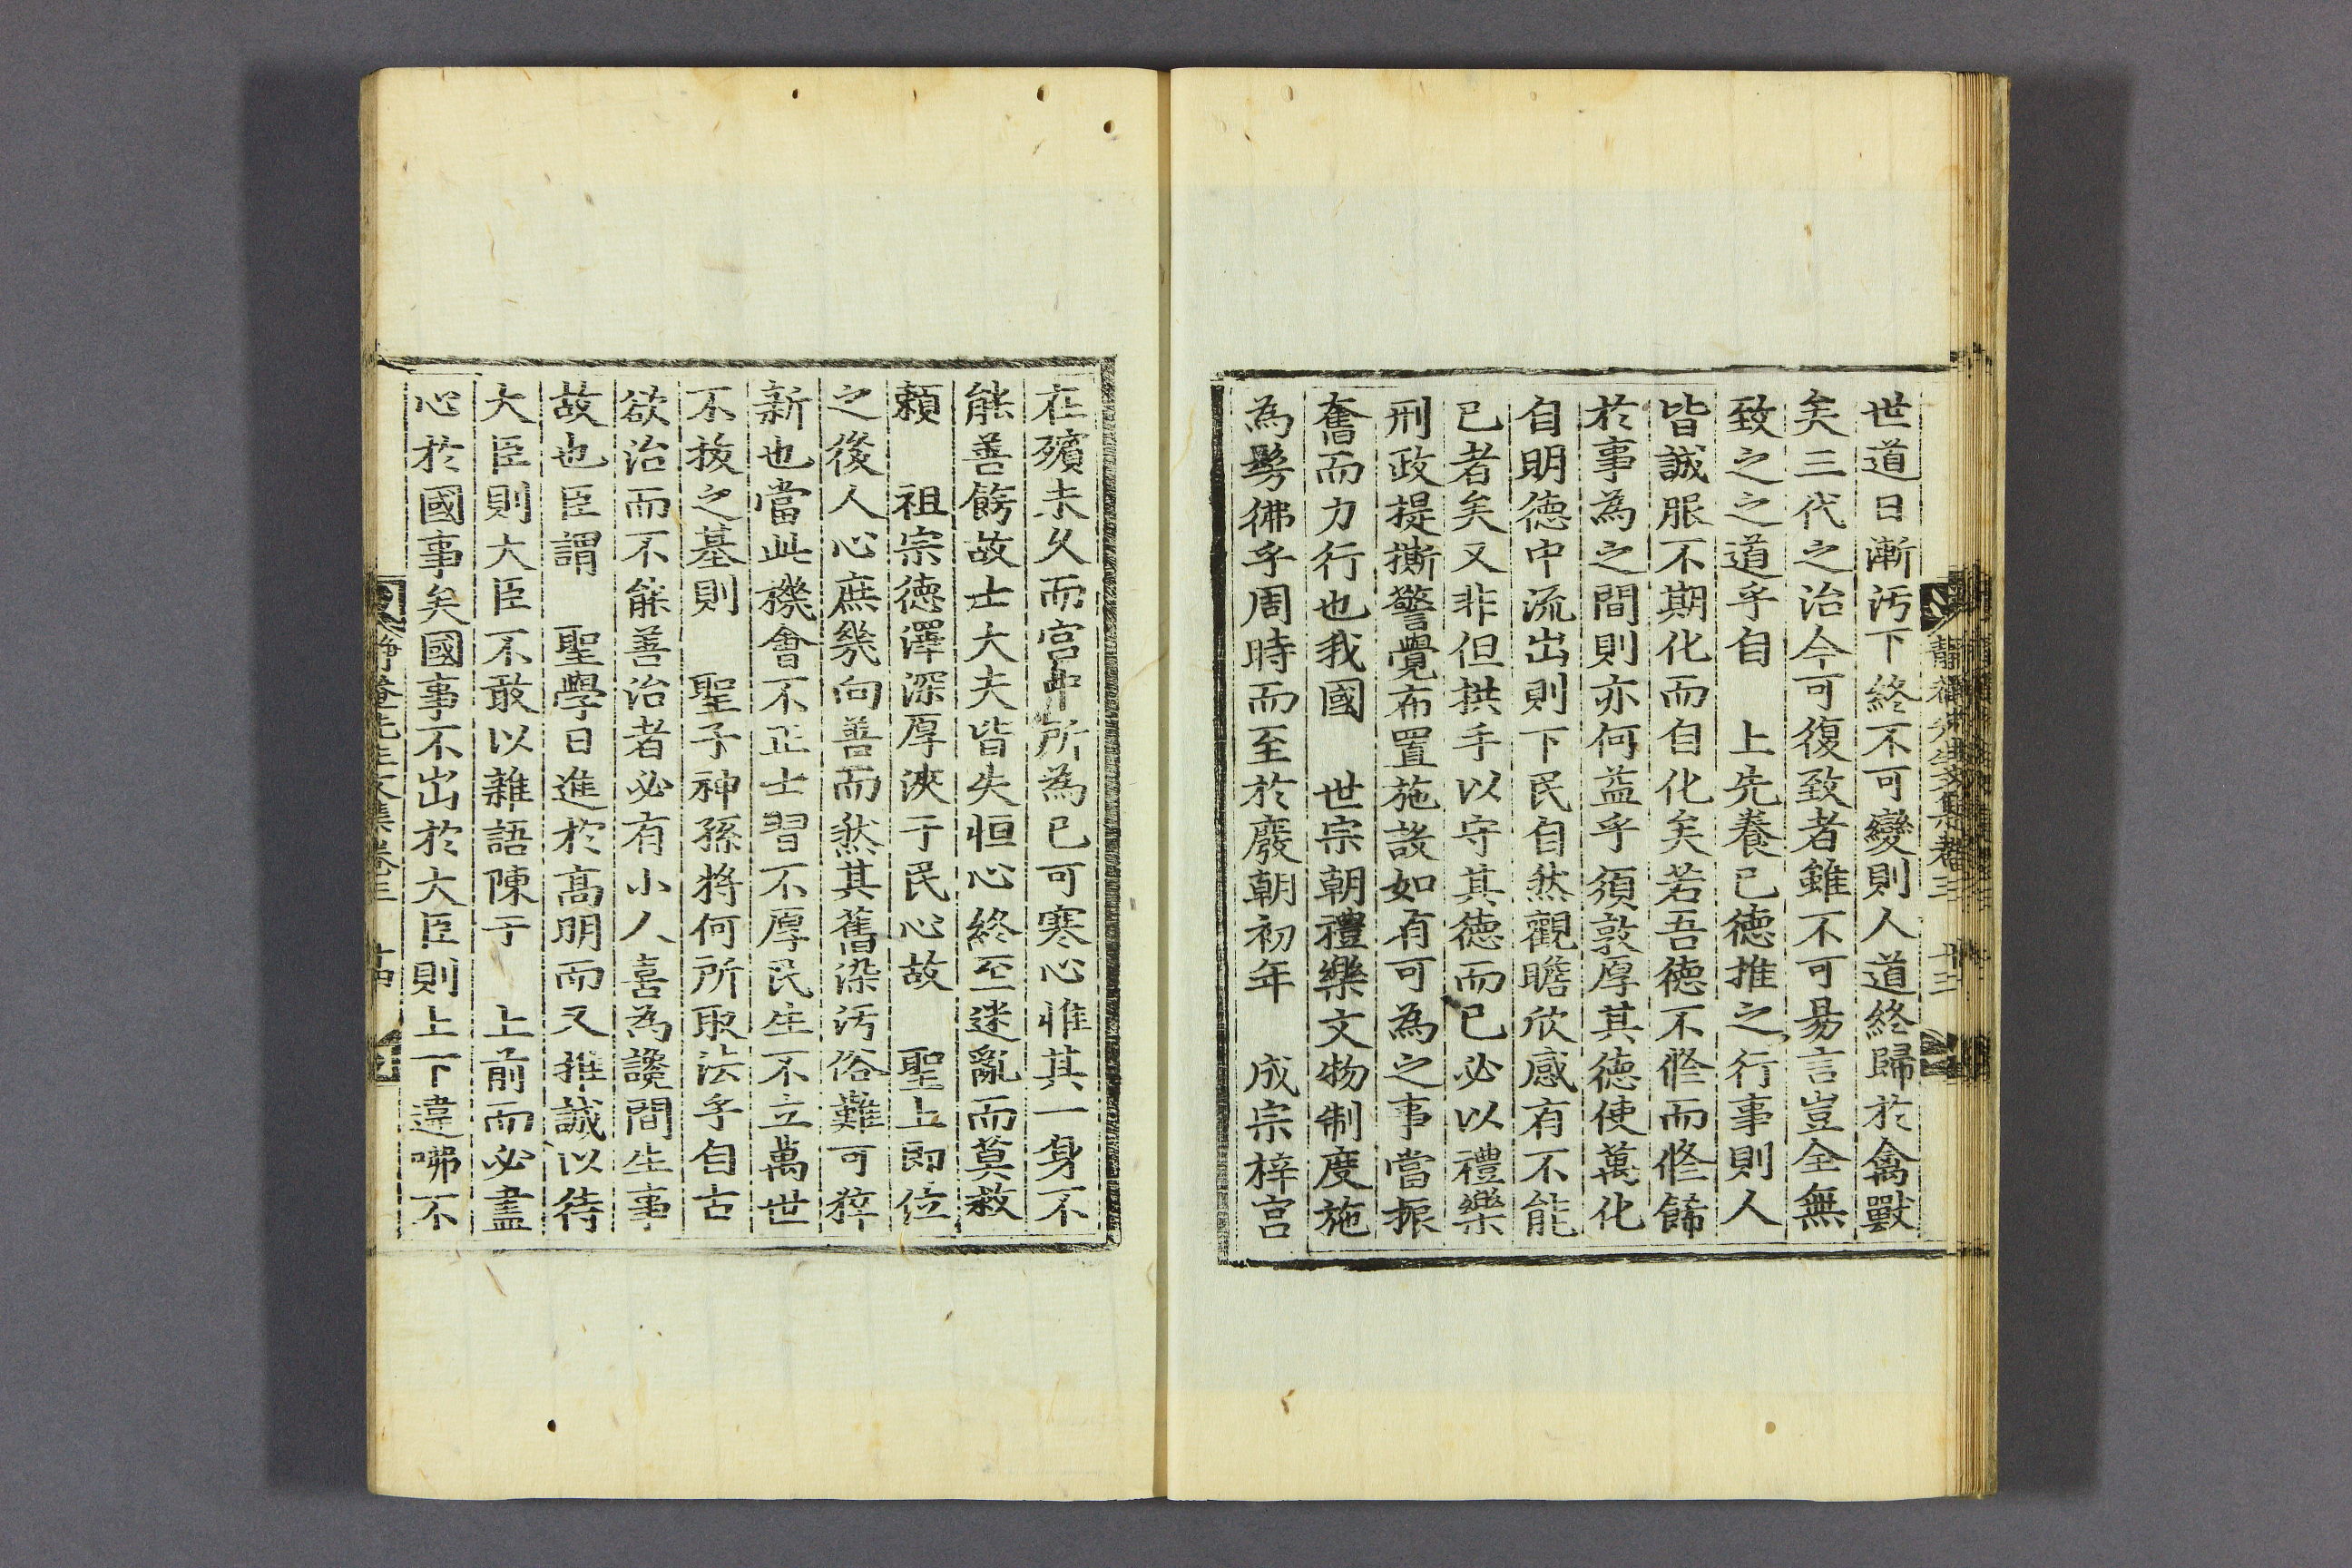 世道日漸汚下終不可變則人道終歸於禽獸
矣三代之治今可復致者雖不可易言豈全無
致之之道乎自　上先養已德推之行事則人
皆誠服不期化而自化矣若吾德不修而修餙
於事為之間則亦何益乎須敦厚其德使萬化
自明德中流出則下民自然觀瞻欣感有不能
已者矣又非但拱手以守其德而已必以禮樂
刑政提撕警覺布置施設如有可為之事當振
奮而力行也我國　世宗朝禮樂文物制度施
為髣彿乎周時而至於廢朝初年　成宗梓宮
在殯未久而宮中所為已可寒心惟其一身不
能善餝故士大夫皆失恒心終至迷亂而莫救
賴　祖宗德澤深厚浹于民心故　聖上即位
之後人心庶幾向善而然其舊染汚俗難可猝
新也當此機會不正士習不厚民生不立萬世
不拔之基則　聖子神孫將何所取法乎自古
欲治而不能善治者必有小人喜為讒間生事
故也臣謂　聖學日進於高明而又推誠以待
大臣則大臣不敢以雜語陳于　上前而必盡
心於國事矣國事不出於大臣則上下違咈不
靜菴先生文集卷三　十四